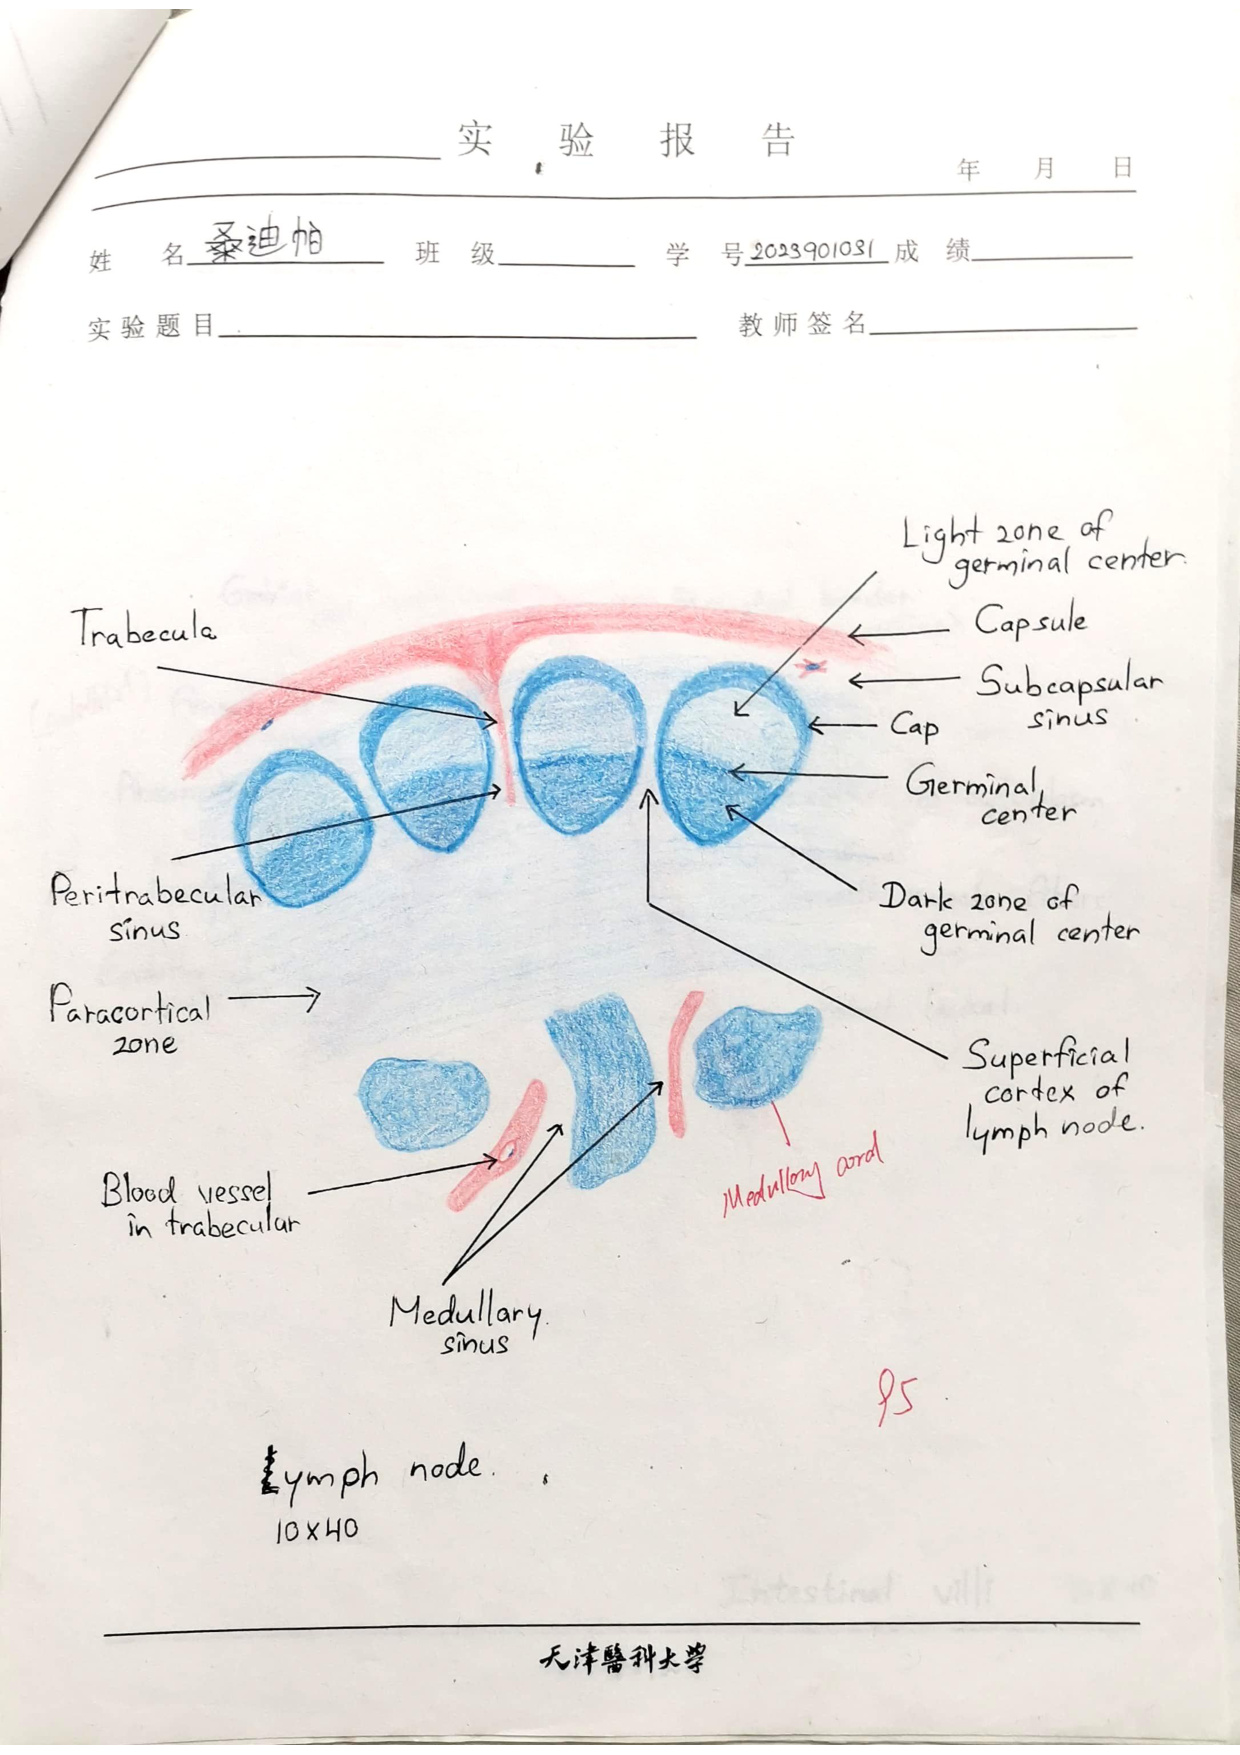 实 验 报 告
年 月 日
姓 名 桑迪帕 班 级 学 号 2023901031 成 绩
实验题目 教师签名
Light zone of
germinal center.
Trabecula
Capsule
Subcapsular
sinus
Cap
Germinal
center
Peritrabecular
sinus
Dark zone of
germinal center
Paracortical
zone
Superficial
cortex of
lymph node.
Medullary cord
Blood vessel
in trabecular
Medullary
sinus
95
Lymph node.
10x40
天津醫科大学